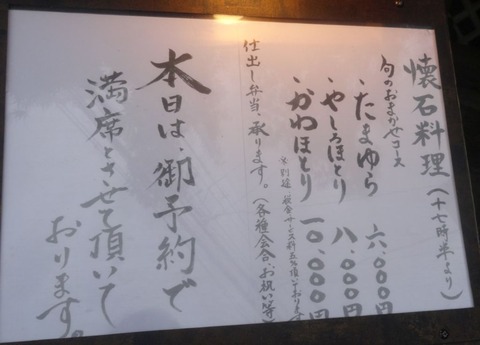 懐石料理（十七時半より）
旬のおまかせコース
・たまゆら 六、〇〇〇円
・やしろほとり 八、〇〇〇円
・かわほとり 一〇、〇〇〇円
※別途、税金・サービス料五%頂いております
仕出し弁当、承ります。（各種会合、お祝い等）
本日は、御予約で
満席とさせて頂いて
おります。